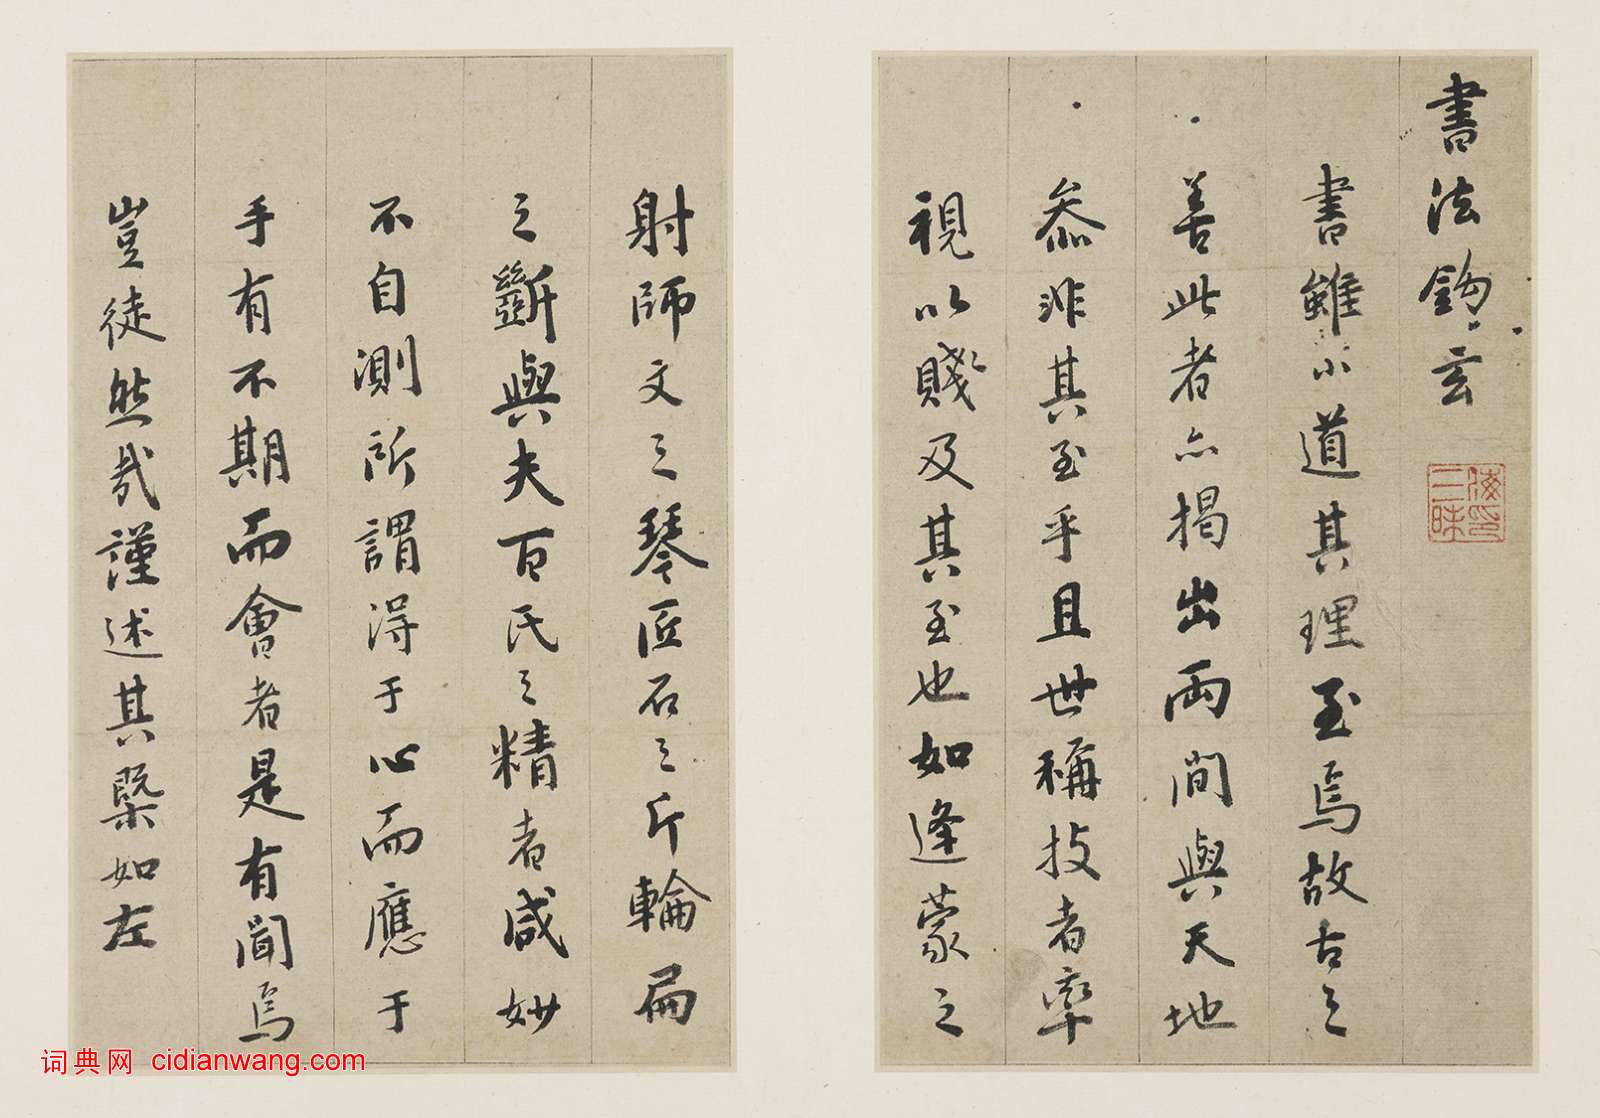 書法鈎玄
書雖小道其理至焉故古之
善此者亦揭出兩間與天地
叅非其至乎且世稱技者率
視以賤及其至也如逢蒙之
射師文之琴匠石之斤輪扁
之斲與夫百氏之精者咸妙
不自測所謂得于心而應于
手有不期而會者是有聞焉
豈徒然哉謹述其槩如左
词典网 cidianwang.com